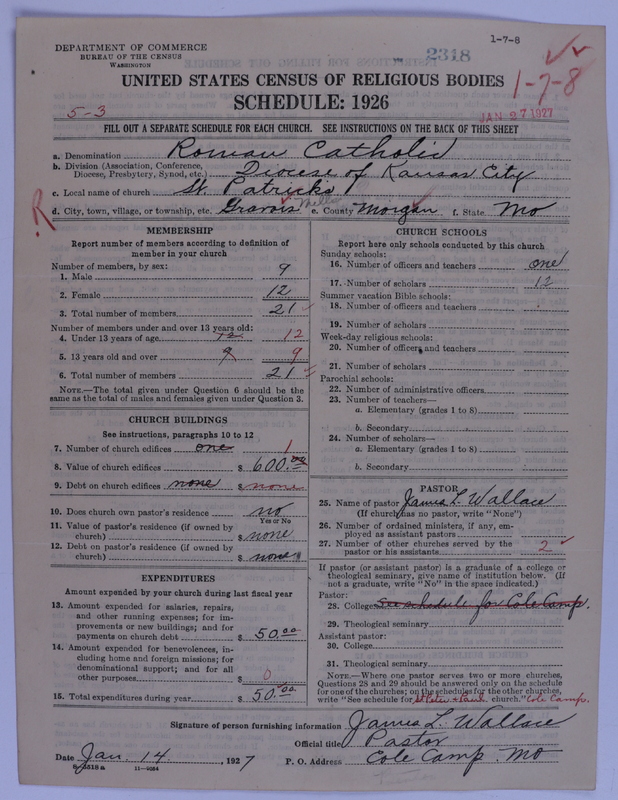 1-7-8
DEPARTMENT OF COMMERCE
BUREAU OF THE CENSUS
WASHINGTON
2318
UNITED STATES CENSUS OF RELIGIOUS BODIES
1-7-8
SCHEDULE: 1926
5-3
JAN 27 1927
FILL OUT A SEPARATE SCHEDULE FOR EACH CHURCH. SEE INSTRUCTIONS ON THE BACK OF THIS SHEET
a. Denomination Roman Catholic
b. Division (Association, Conference, Diocese, Presbytery, Synod, etc.) Diocese of Kansas City
c. Local name of church St. Patricks
R
d. City, town, village, or township, etc. Gravois Mills e. County Morgan f. State Mo
MEMBERSHIP
Report number of members according to definition of
member in your church
Number of members, by sex:
1. Male 9
2. Female 12
3. Total number of members 21
Number of members under and over 13 years old:
4. Under 13 years of age 12 12
5. 13 years old and over 9 9
6. Total number of members 21
NOTE.—The total given under Question 6 should be the
same as the total of males and females given under Question 3.
CHURCH BUILDINGS
See instructions, paragraphs 10 to 12
7. Number of church edifices one 1
8. Value of church edifices $ 600.00
9. Debt on church edifices none $ none
10. Does church own pastor's residence no
Yes or No
11. Value of pastor's residence (if owned by
church) $ none
12. Debt on pastor's residence (if owned by
church) $ none
EXPENDITURES
Amount expended by your church during last fiscal year
13. Amount expended for salaries, repairs,
and other running expenses; for im-
provements or new buildings; and for
payments on church debt $ 50.00
14. Amount expended for benevolences, in-
cluding home and foreign missions; for
denominational support; and for all
other purposes $ 0
15. Total expenditures during year $ 50.00
CHURCH SCHOOLS
Report here only schools conducted by this church
Sunday schools:
16. Number of officers and teachers one
17. Number of scholars 12
Summer vacation Bible schools:
18. Number of officers and teachers
19. Number of scholars
Week-day religious schools:
20. Number of officers and teachers
21. Number of scholars
Parochial schools:
22. Number of administrative officers
23. Number of teachers—
a. Elementary (grades 1 to 8)
b. Secondary
24. Number of scholars—
a. Elementary (grades 1 to 8)
b. Secondary
PASTOR
25. Name of pastor James L. Wallace
(If church has no pastor, write "None")
26. Number of ordained ministers, if any, em-
ployed as assistant pastors
27. Number of other churches served by the
pastor or his assistants 2
If pastor (or assistant pastor) is a graduate of a college or
theological seminary, give name of institution below. (If
not a graduate, write "No" in the space indicated.)
Pastor:
28. College See schedule for Cole Camp.
29. Theological seminary
Assistant pastor:
30. College
31. Theological seminary
NOTE.—Where one pastor serves two or more churches,
Questions 28 and 29 should be answered only on the schedule
for one of the churches; on the schedules for the other churches,
write "See schedule for St Peter + Paul church." Cole Camp.
Signature of person furnishing information James L. Wallace
Official title Pastor
Date Jan. 14, 1927 P. O. Address Cole Camp. Mo
8-3518a 11-4064